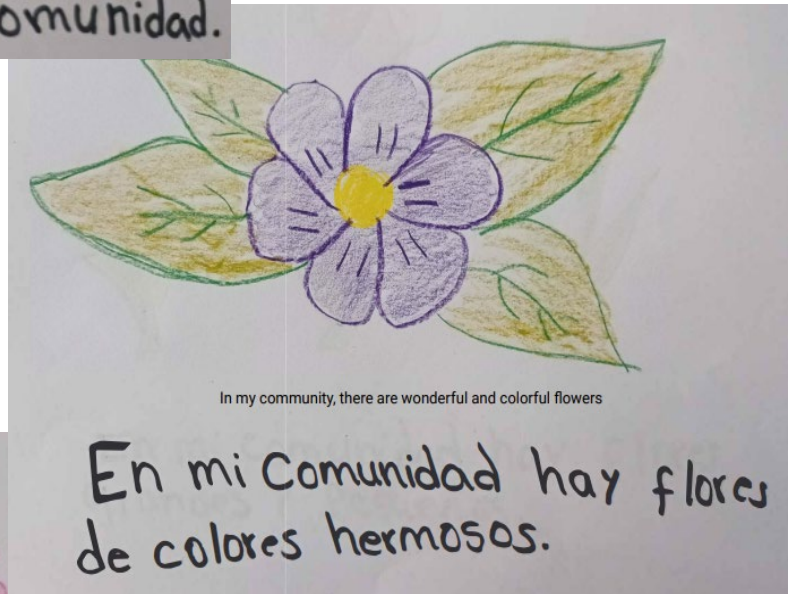 omunidad.
In my community, there are wonderful and colorful flowers
En mi comunidad hay flores
de colores hermosos.